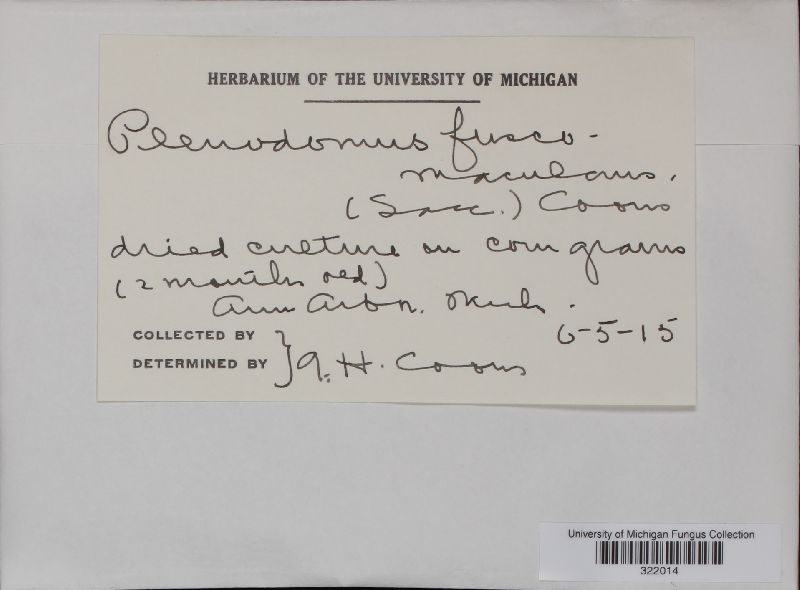 HERBARIUM OF THE UNIVERSITY OF MICHIGAN
Plenodomus fusco-
maculans.
(Sacc.) Coons
dried culture on corn grains
(2 months old)
Ann Arbor. Mich.
6-5-15
COLLECTED BY
DETERMINED BY } G. H. Coons
University of Michigan Fungus Collection
322014